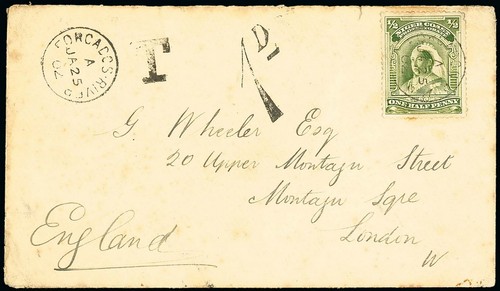 FORCADOS RIVER
A
JA 25
02
T
1D.
½ ½
NIGER COAST
ONE HALF PENNY
G. Wheeler Esq
20 Upper Montagu Street
Montagu Sqre
London
W
England